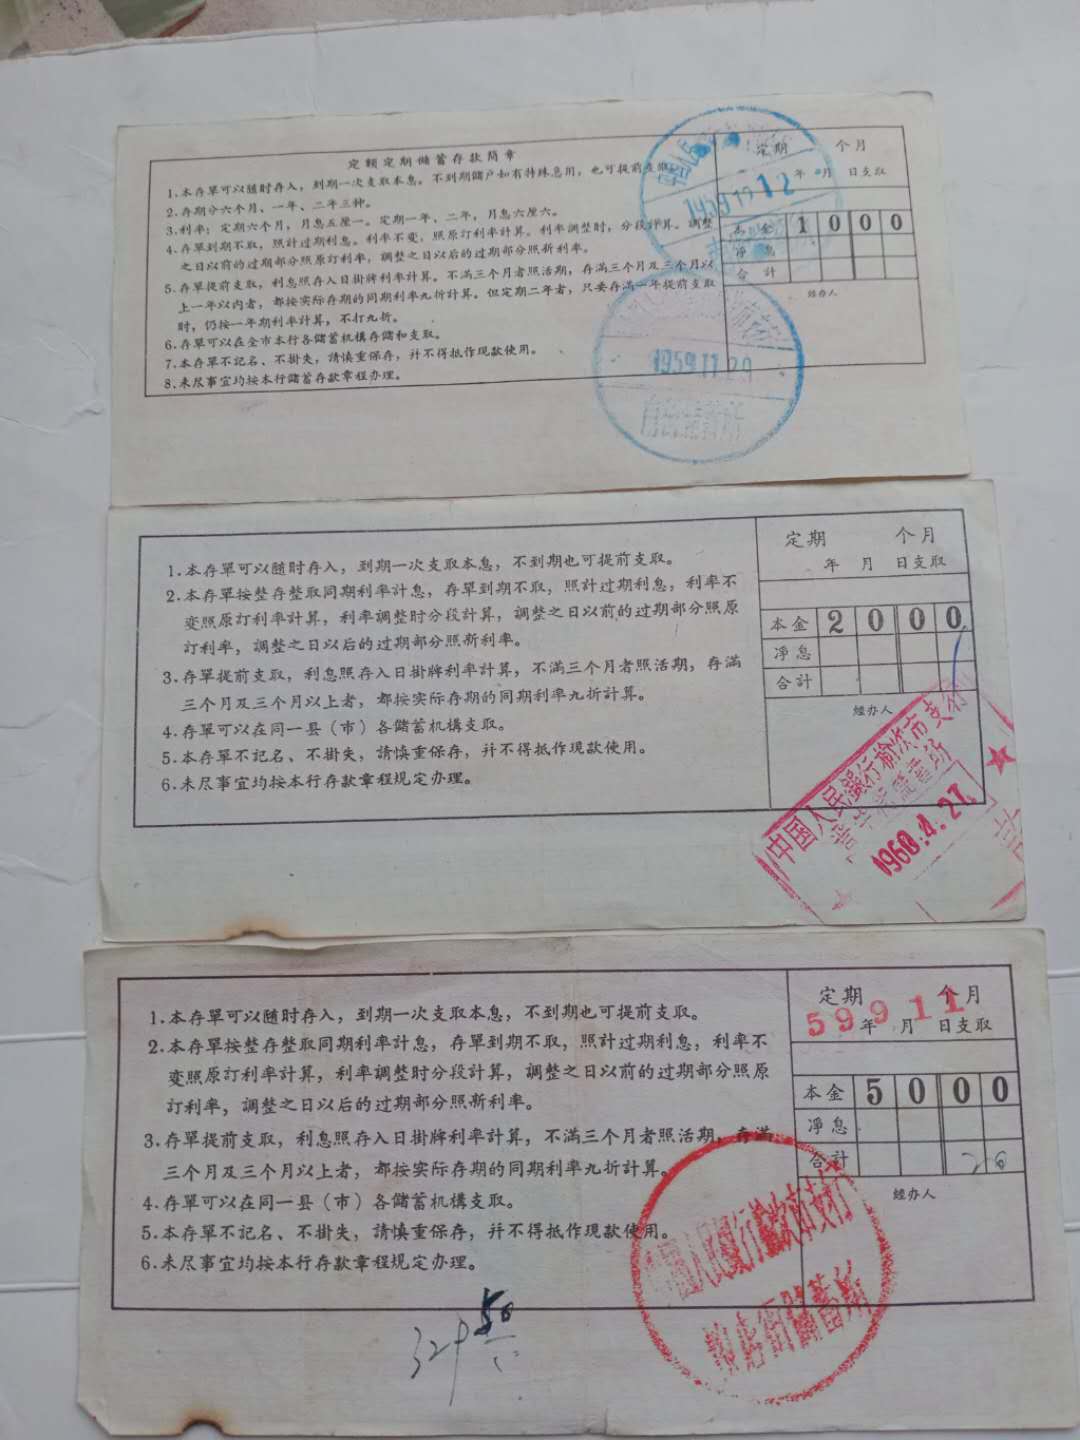 定額定期儲蓄存款简章
1.本存單可以隨时存入，到期一次支取本息。不到期儲户如有特殊急用，也可提前支取。
2.存期分六个月、一年、二年三种。
3.利率：定期六个月，月息五厘一。定期一年、二年，月息六厘六。
4.存單到期不取，照計过期利息。利率不变，照原訂利率計算。利率調整时，分段計算。調整
之日以前的过期部分照原訂利率，調整之日以后的过期部分照新利率。
5.存單提前支取，利息照存入日掛牌利率計算。不滿三个月者照活期，存滿三个月及三个月以
上一年以内者，都按实际存期的同期利率九折計算。但定期二年者，只要存滿一年提前支取
时，仍按一年期利率計算，不打九折。
6.存單可以在全市本行各儲蓄机構存儲和支取。
7.本存單不記名、不掛失，請慎重保存，幷不得抵作現款使用。
8.未尽事宜均按本行儲蓄存款章程办理。
定期 个月
年 月 日支取
本金 1000
净息
合計
經办人
1959.11.29
1.本存單可以隨时存入，到期一次支取本息，不到期也可提前支取。
2.本存單按整存整取同期利率計息，存單到期不取，照計过期利息，利率不
变照原訂利率計算，利率調整时分段計算，調整之日以前的过期部分照原
訂利率，調整之日以后的过期部分照新利率。
3.存單提前支取，利息照存入日掛牌利率計算，不滿三个月者照活期，存滿
三个月及三个月以上者，都按实际存期的同期利率九折計算。
4.存單可以在同一县（市）各儲蓄机構支取。
5.本存單不記名、不掛失，請慎重保存，幷不得抵作現款使用。
6.未尽事宜均按本行存款章程規定办理。
定期 个月
年 月 日支取
本金 2000
净息
合計
經办人
中国人民銀行榆次市支行
1960.4.27
1.本存單可以隨时存入，到期一次支取本息，不到期也可提前支取。
2.本存單按整存整取同期利率計息，存單到期不取，照計过期利息，利率不
变照原訂利率計算，利率調整时分段計算，調整之日以前的过期部分照原
訂利率，調整之日以后的过期部分照新利率。
3.存單提前支取，利息照存入日掛牌利率計算，不滿三个月者照活期，存滿
三个月及三个月以上者，都按实际存期的同期利率九折計算。
4.存單可以在同一县（市）各儲蓄机構支取。
5.本存單不記名、不掛失，請慎重保存，幷不得抵作現款使用。
6.未尽事宜均按本行存款章程規定办理。
定期 个月
59 9 11
年 月 日支取
本金 5000
净息
合計
經办人